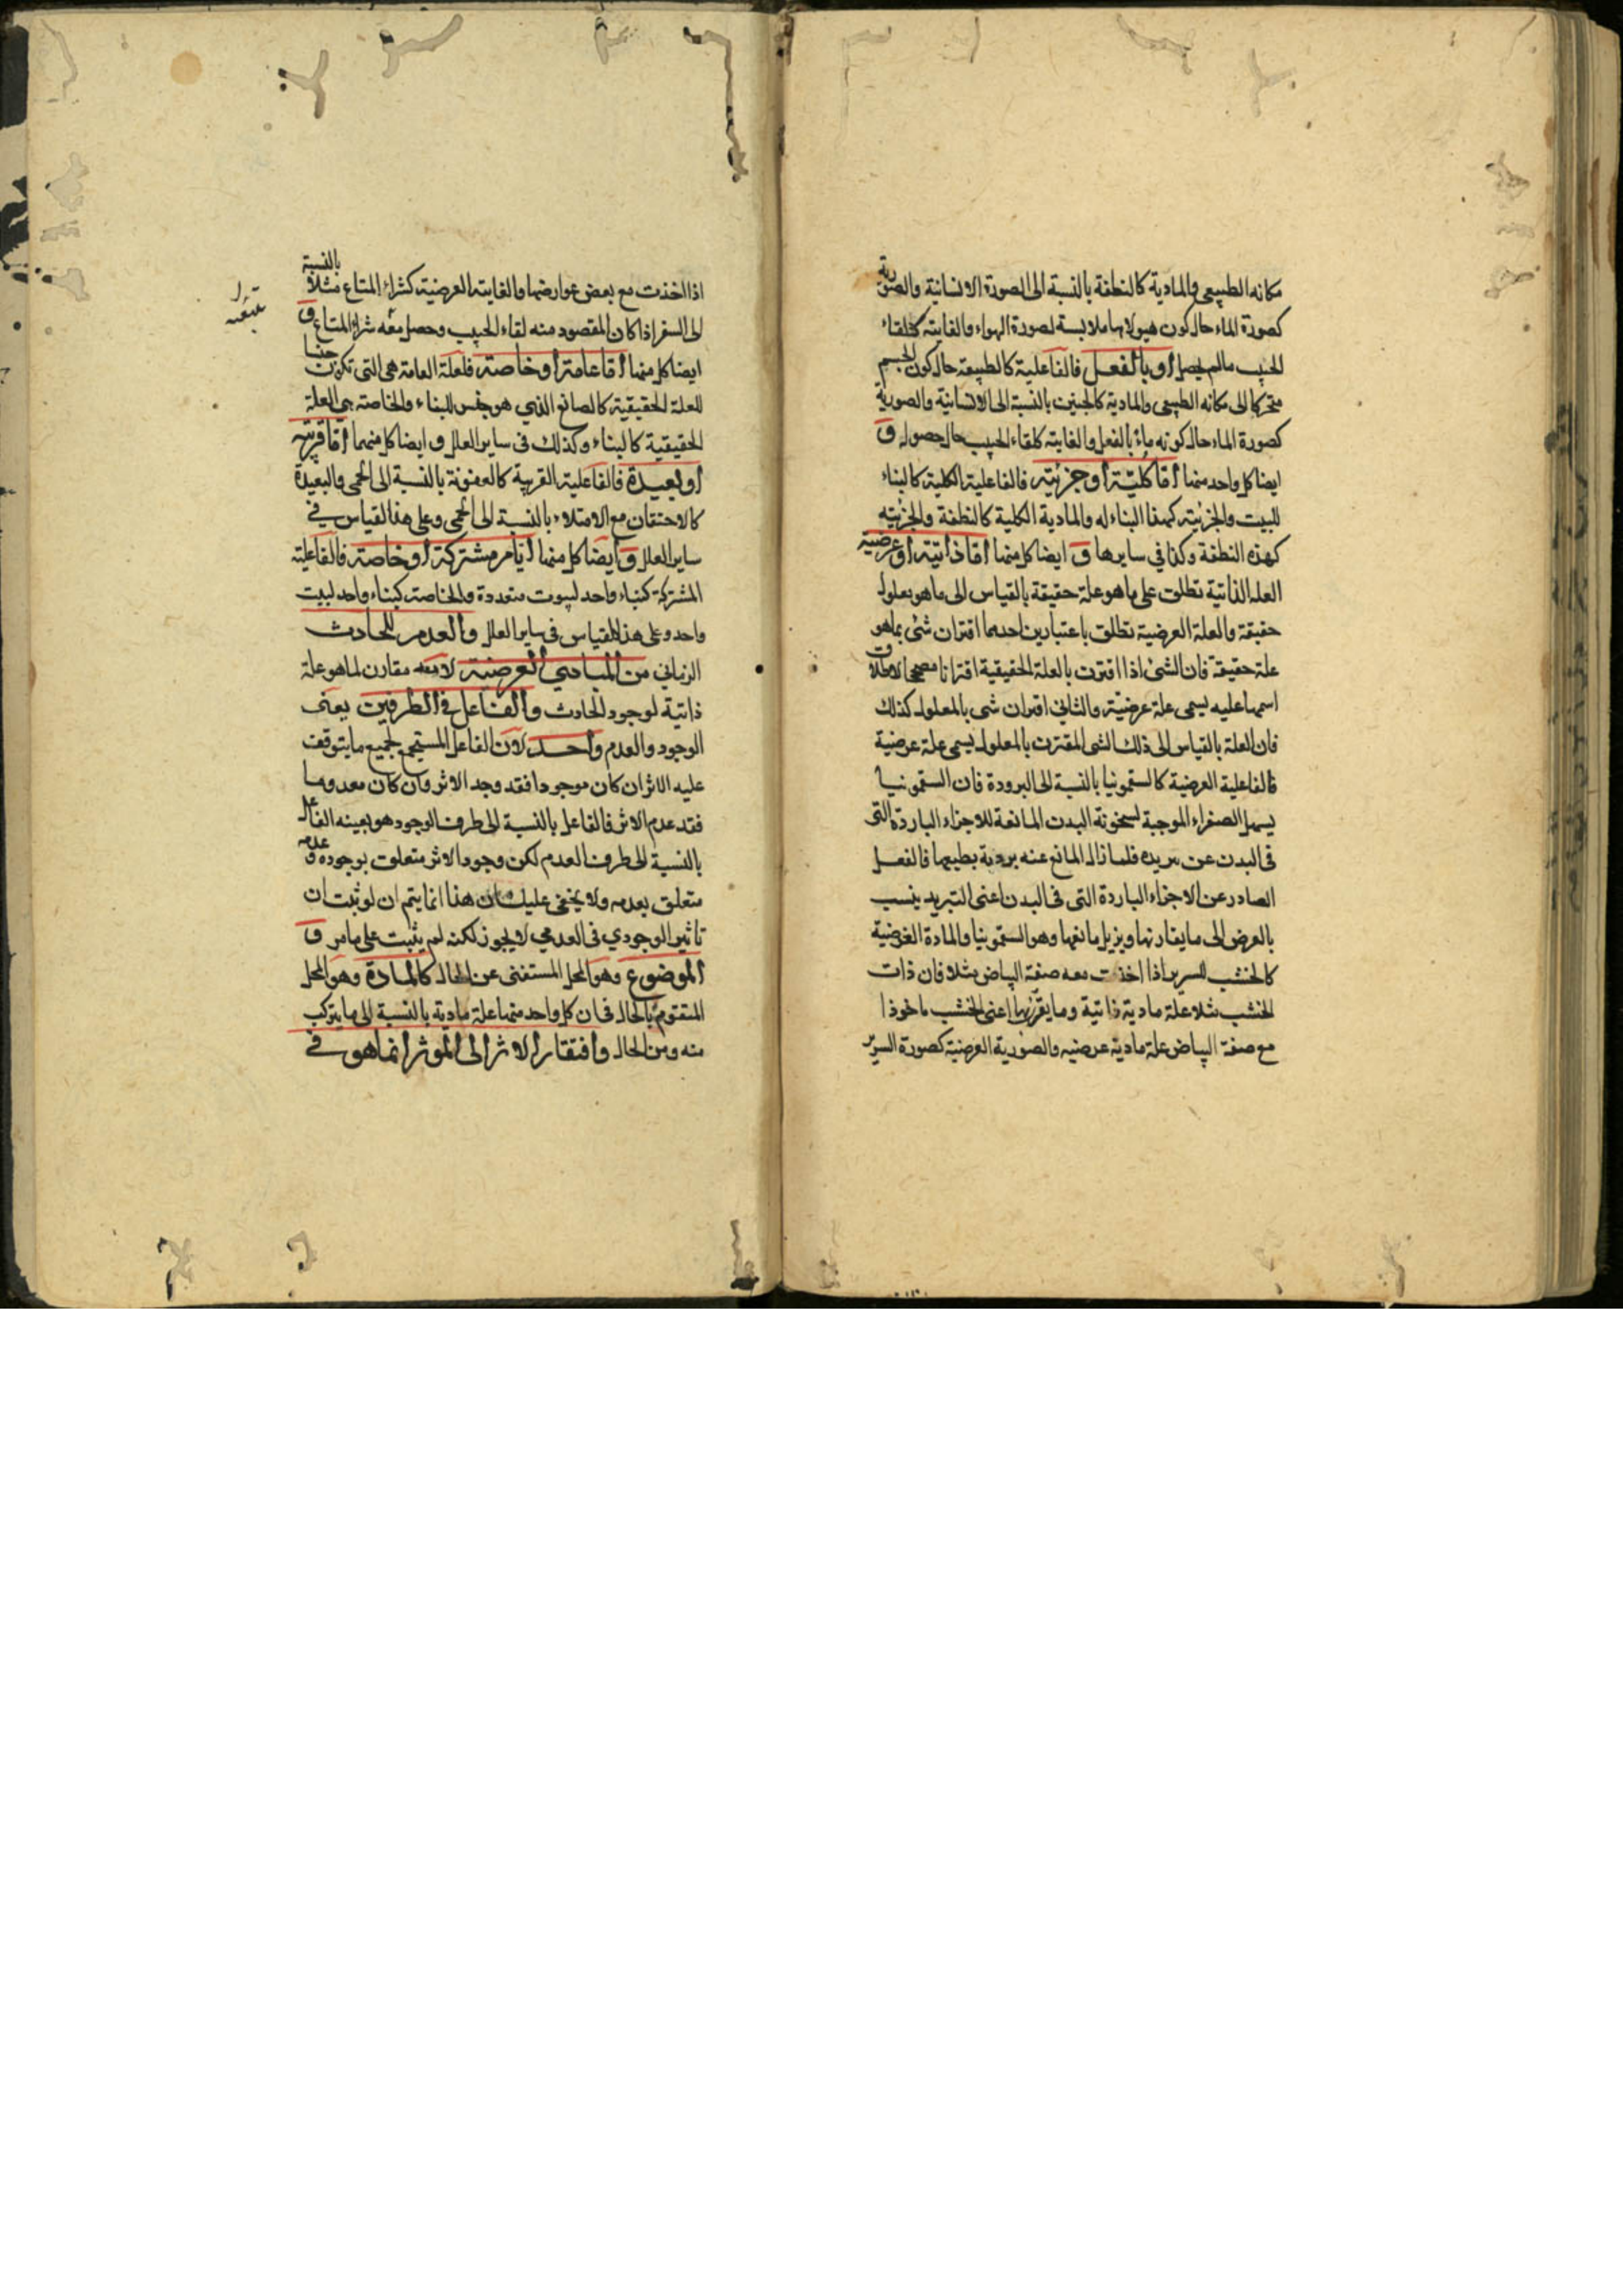 مكانه الطبيعى والمادية كالنطفة بالنسبة الى الصورة الانسانية والصورية
كصورة الماء حال كون هيولاها ملابسة لصورة الهواء والغاية كلقاء
الحبيب مالم يحصل او بالفعل فالفاعلية كالطبيعة حال كون الجسم
متحركا الى مكانه الطبيعى والمادية كالجنين بالنسبة الى الانسانية والصورية
كصورة الماء حال كونه ماء بالفعل والغاية كلقاء الحبيب حال حصوله و
ايضا كل واحد منها اما كلية او جزئية فالفاعلية الكلية كالبناء
للبيت والجزئية كهذا البناء له والمادية الكلية كالنطفة والجزئية
كهذه النطفة وكذا في سايرها و ايضا كل منها اما ذاتية او عرضية
العلة الذاتية تطلق على ماهو علة حقيقة بالقياس الى ماهو معلول
حقيقة والعلة العرضية تطلق باعتبارين احدهما اقتران شئ بماهو
علة حقيقة فان الشئ اذا اقترن بالعلة الحقيقية اقترانا مصححا لاطلاق
اسمها عليه يسمى علة عرضية والثاني اقتران شى بالمعلول كذلك
فان العلة بالقياس الى ذلك الشى المقترن بالمعلول يسمى علة عرضية
فالفاعلية العرضية كالسقمونيا بالنسبة الى البرودة فان السقمونيا
يسهل الصفراء الموجبة لسخونة البدن المانعة للاجزاء الباردة التى
فى البدن عن تبريده فلما زال المانع عنه بردته بطبعها فالفعل
الصادر عن الاجزاء الباردة التى فى البدن اعنى التبريد ينسب
بالعرض الى مايقارنها ويزيل مانعها وهو السقمونيا والمادة العرضية
كالخشب للسرير اذا اخذت معه صفة البياض مثلا فان ذات
الخشب مثلا علة مادية ذاتية وما يقرنها اعنى الخشب ماخوذا
مع صفة البياض علة مادية عرضيه والصورية العرضية كصورة السرير
اذا اخذت مع بعض عوارضها والغاية العرضية كشراء المتاع مثلا بالنسبة
الى السفر اذا كان المقصود منه لقاء الحبيب وحصل معه شراء المتاع و
ايضا كل منها اما عامة او خاصة فلعلة العامة هى التى تكون جنسا
للعلة الحقيقية كالصانع الذي هو جنس للبناء والخاصة هى العلة
الحقيقية كالبناء وكذلك فى ساير العلل و ايضا كل منهما اما قريبة
او بعيدة فالفاعلية القريبة كالعفونة بالنسبة الى الحمى والبعيدة
كالاحتقان مع الامتلاء بالنسبة الى الحمى وعلى هذا القياس في
ساير العلل و ايضا كل منها اما مشتركة او خاصة فالفاعلية
المشتركة كبناء واحد لبيوت متعددة والخاصة كبناء واحد لبيت
واحد وعلى هذا القياس فى ساير العلل والعدم للحادث
الزماني من المبادي العرضية لانه مقارن لماهو علة
ذاتية لوجود الحادث والفاعل فى الطرفين يعنى
الوجود والعدم واحد لان الفاعل المستجمع لجميع مايتوقف
عليه الاثر ان كان موجودا فقد وجد الاثر وان كان معدوما
فقد عدم الاثر فالفاعل بالنسبة الى طرف الوجود هو بعينه الفاعل
بالنسبة الى طرف العدم لكن وجود الاثر متعلق بوجوده وعدمه
متعلق بعدمه ولا يخفى عليك ان هذا انما يتم ان لو ثبت ان
تاثير الوجودي فى العدمي لايجوز لكنه لم يثبت على مامر و
الموضوع وهو المحل المستغنى عن الحال كالمادة وهو المحل
المتقوم بالحال فان كل واحد منها علة مادية بالنسبة الى مايتركب
منه ومن الحال وافتقار الاثر الى المؤثر انماهو في